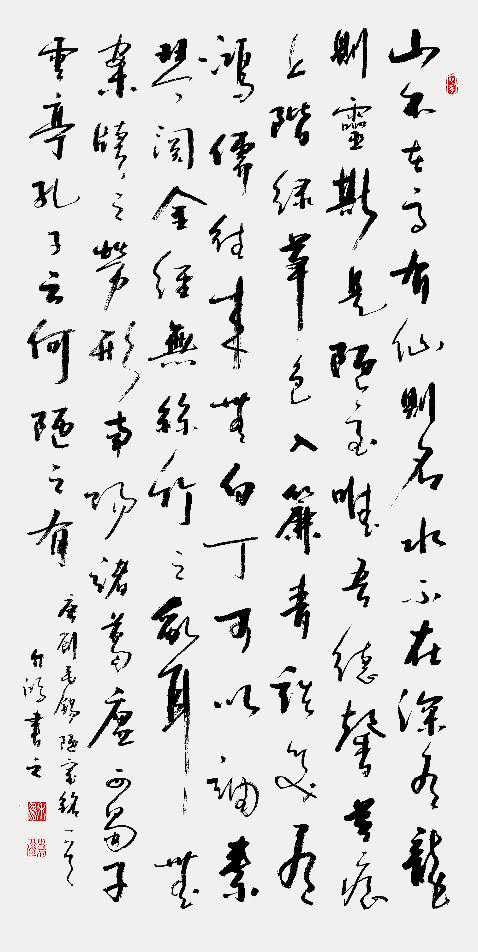 山不在高有仙則名水不在深有龍
則靈斯是陋室唯吾德馨苔痕
上階綠草色入簾青談笑有
鴻儒往來無白丁可以調素
琴閱金經無絲竹之亂耳無
案牘之勞形南陽諸葛廬西蜀子
雲亭孔子云何陋之有
唐劉禹錫陋室銘一首
書之